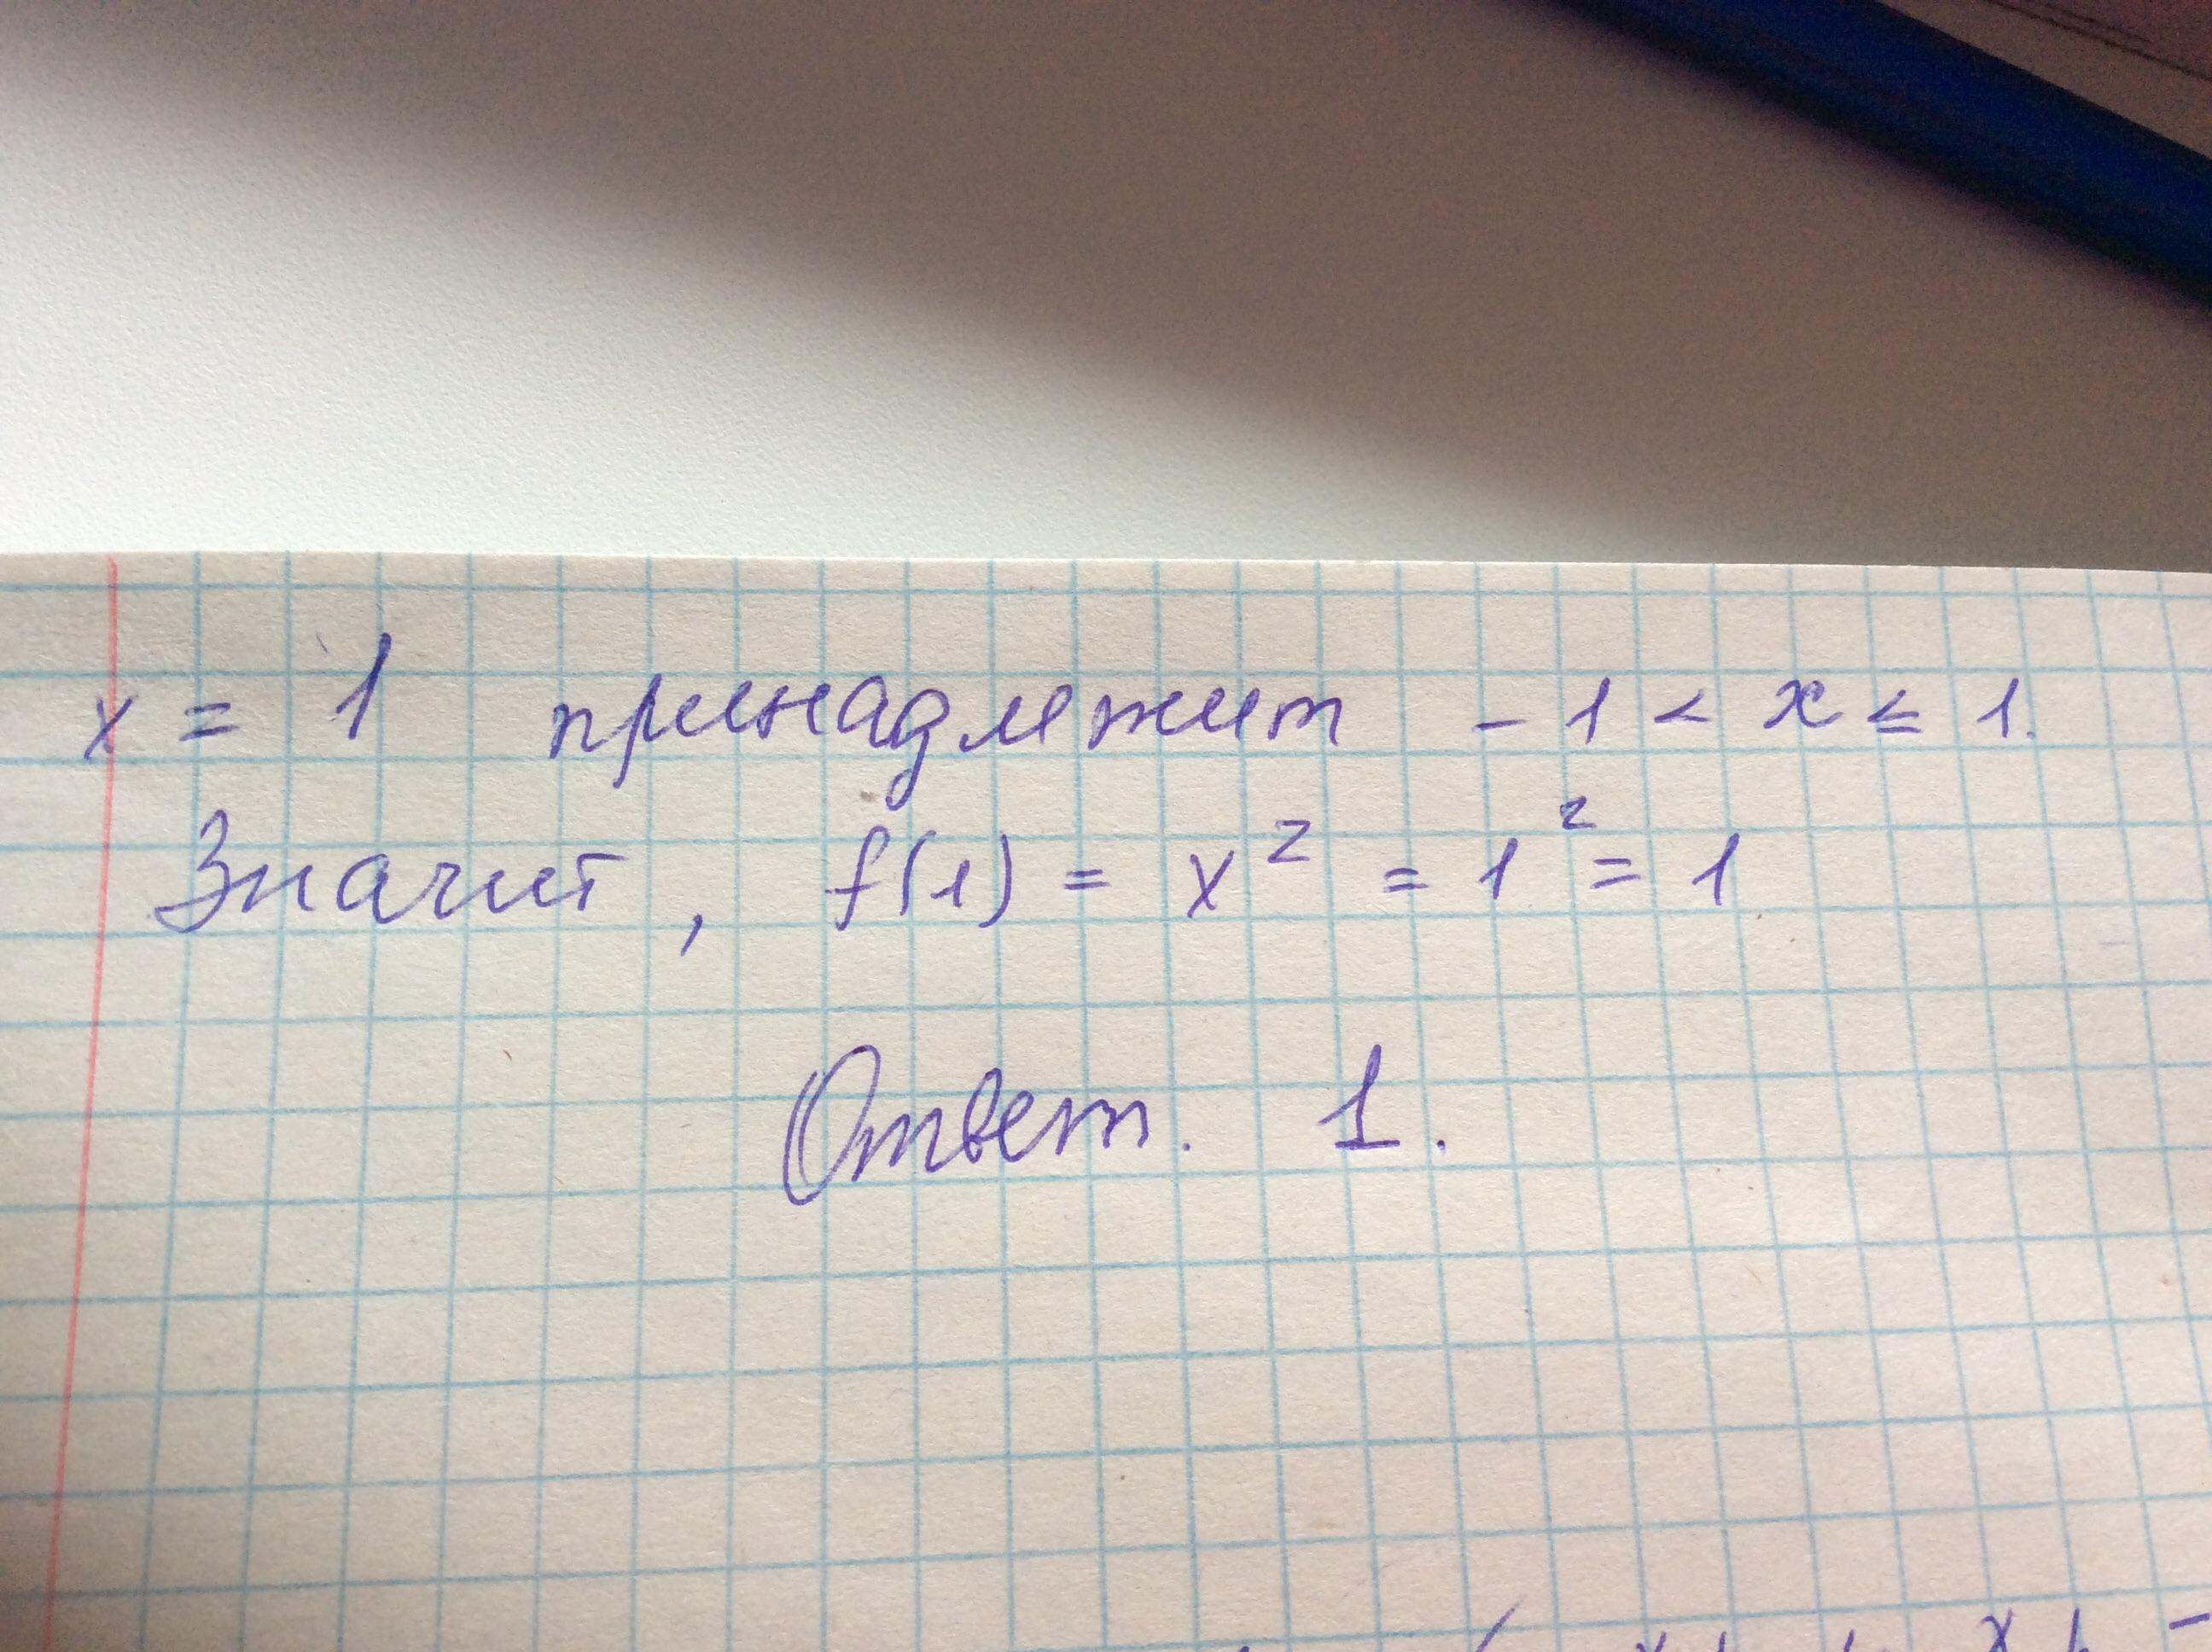 x = 1 принадлежит -1 < x ≤ 1.
Значит, f(1) = x² = 1² = 1
Ответ. 1.